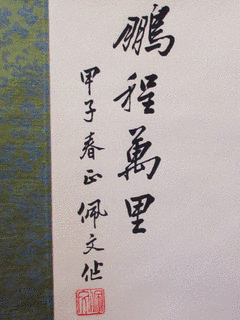 鹏程萬里
甲子春正佩文作